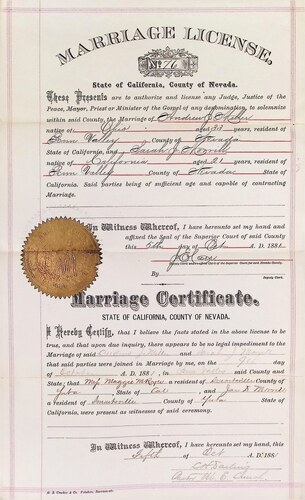 MARRIAGE LICENSE,
No. 76
State of California, County of Nevada.
These Presents are to authorize and license any Judge, Justice of the
Peace, Mayor, Priest or Minister of the Gospel of any denomination, to solemnize
within said county, the Marriage of Andrew J.
native of Ohio aged resident of
Penn Valley County of Nevada
State of California, and Sarah J.
native of California aged 21 years, resident of
Penn Valley County of Nevada
California. Said parties being of sufficient age and capable of contracting
Marriage.
In Witness Whereof, I have hereunto set my hand and
affixed the Seal of the Superior Court of said County
this 5th day of Oct A. D. 188
By
Deputy Clerk.
Marriage Certificate.
STATE OF CALIFORNIA, COUNTY OF NEVADA.
I Hereby Certify, that I believe the facts stated in the above license to
be true, and that upon due inquiry, there appears to be no legal impediment to the
Marriage of said
that said parties were joined in Marriage by me, on the
day of A. D. 188 in County
State; that Miss Maggie McRyer a resident of Smartsville County of
Yuba State of Cal and Jas. D.
a resident of Smartsville County of Yuba State of
California, were present as witnesses of said ceremony.
In Witness Whereof, I have hereunto set my hand, this
Fifth of Oct A. D. 188
M. E. Church